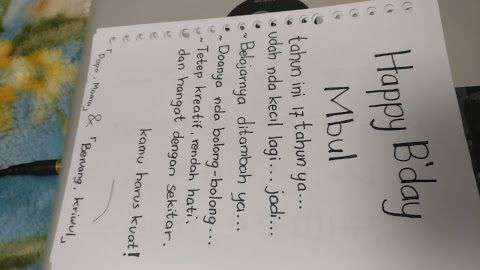 Happy B'day
Mbul
tahun ini 17 tahun ya...
udah nda kecil lagi... jadi...
~ Belajarnya ditambah ya...
~ Doanya nda bolong-bolong...
~ Tetep kreatif, rendah hati,
dan hangat dengan sekitar.
kamu harus kuat!
Mama, & Benang, keriwul